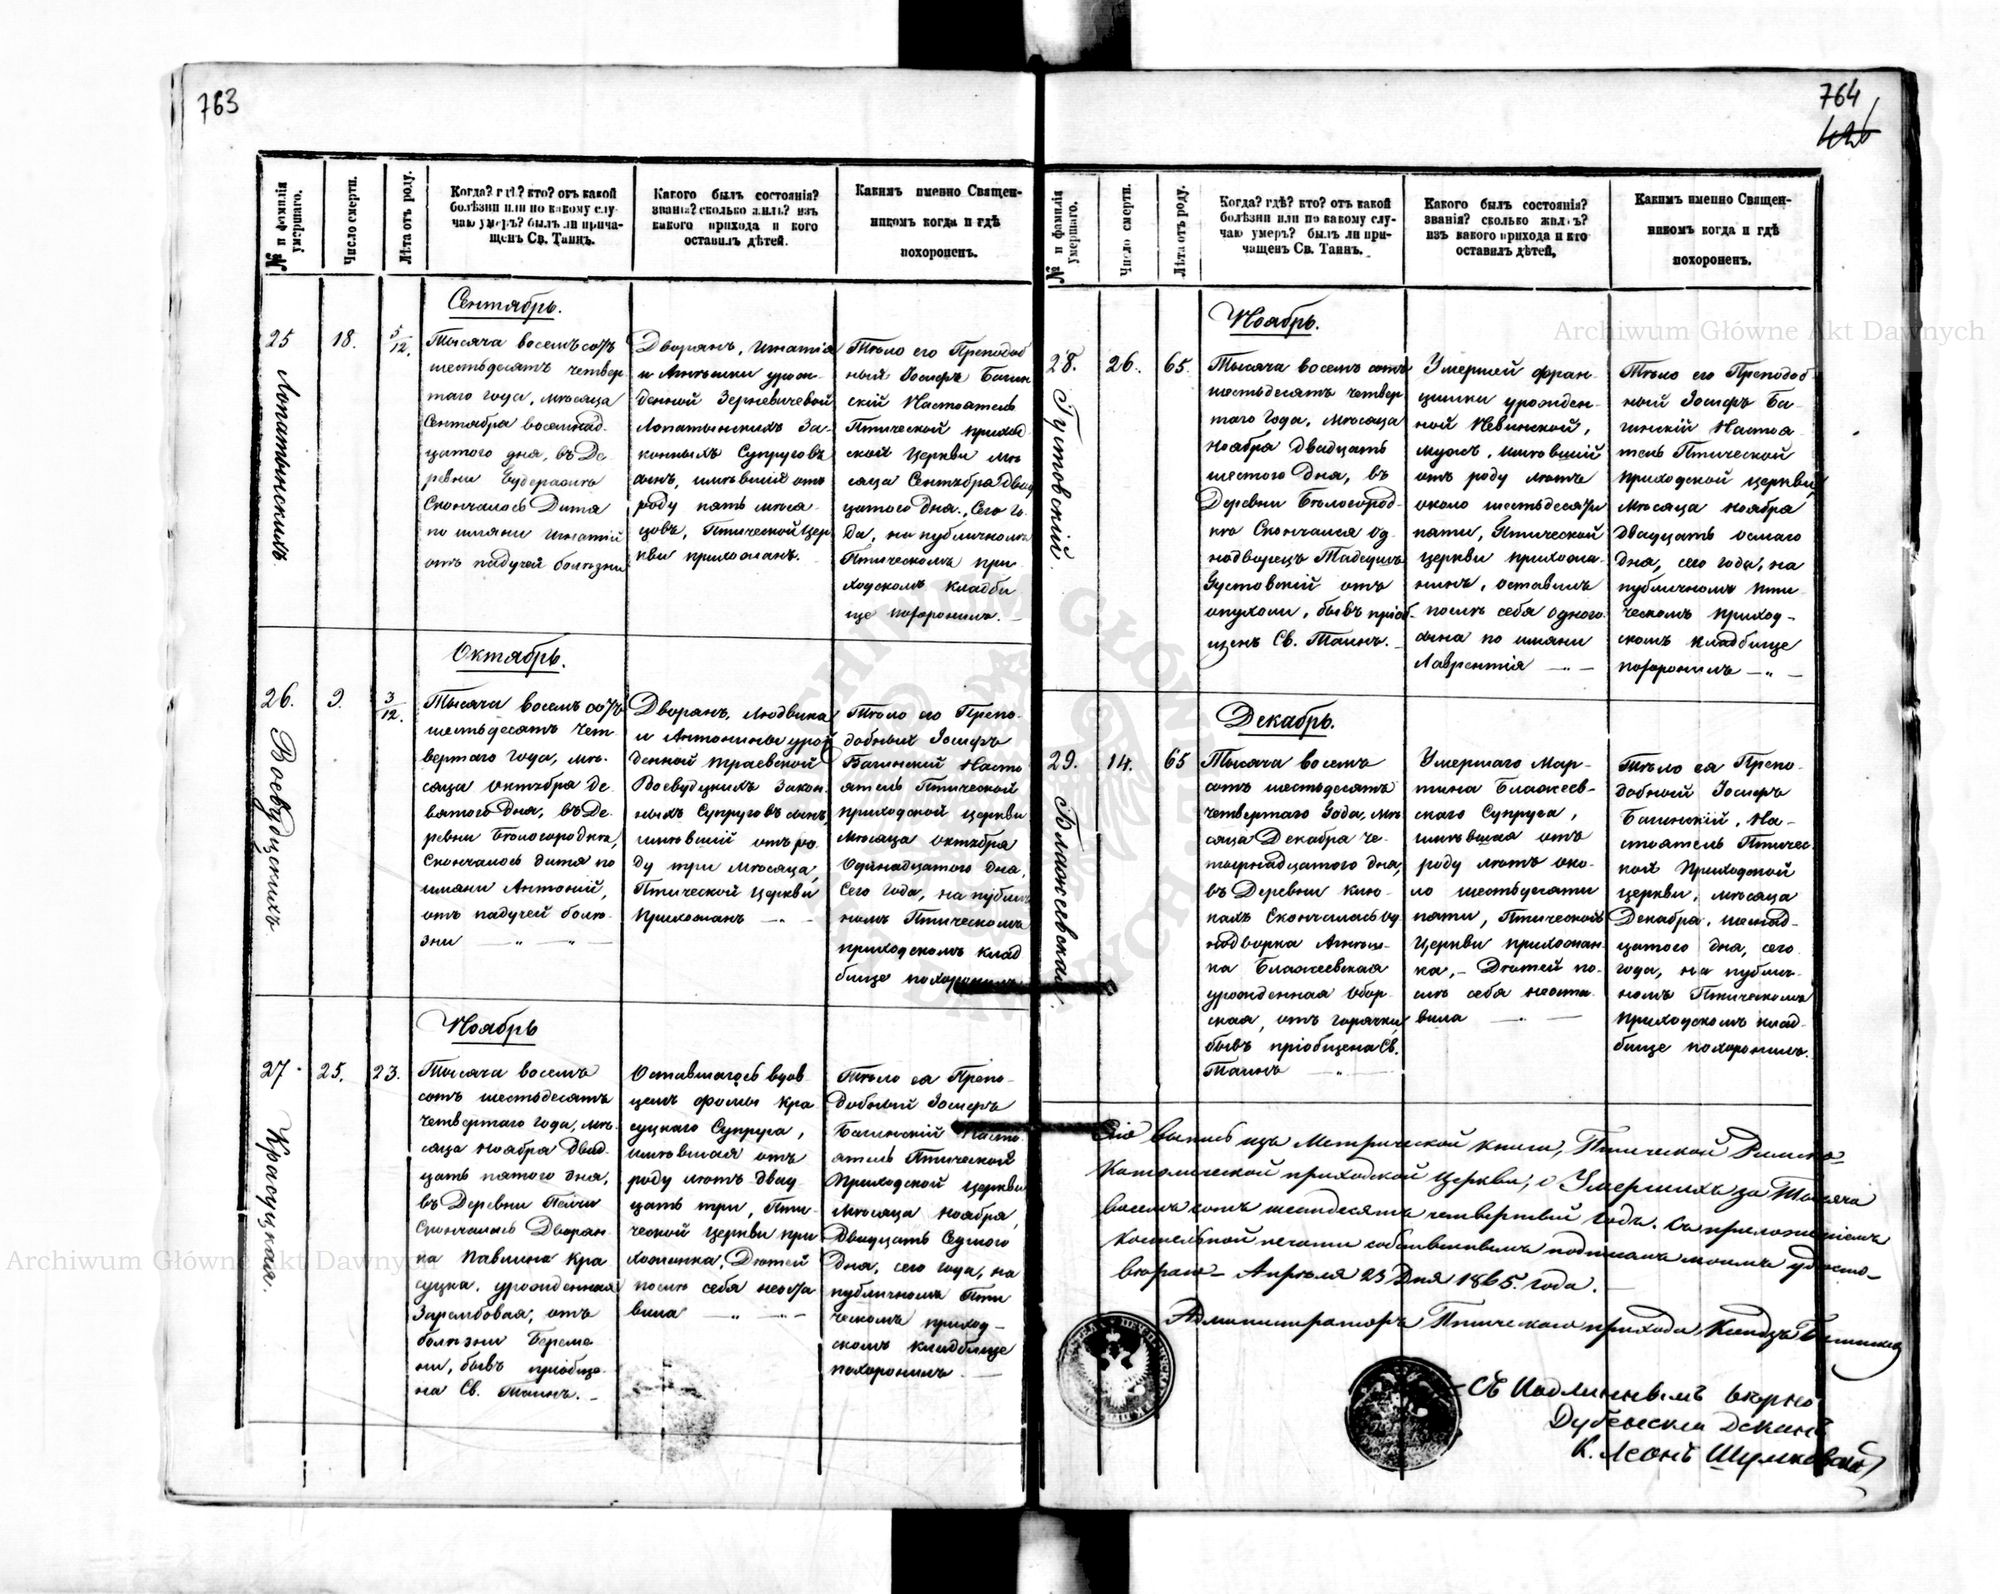 763
№ и фамилія умершаго.
Число смерти.
Лѣта отъ роду.
Когда? гдѣ? кто? отъ какой
болѣзни или по какому слу-
чаю умеръ? былъ ли прича-
щенъ Св. Таинъ.
Какого былъ состоянія?
званія? сколько жилъ? изъ
какого прихода и кого
оставилъ дѣтей.
Какимъ именно Священ-
никомъ когда и гдѣ
похороненъ.
Сентябрь.
25
Лопатынскихъ
18.
5/12.
Тысяча восемъ сотъ
шестьдесятъ четвер
таго года, мѣсяца
Сентября восемнад
цатого дня, въ Де
ревни Будеражъ
Скончалось Дитя
по имяни Игнатій
отъ падучей болѣзни
Дворянъ, Игнатія
и Анѣлики урож-
денной Зерневичевой
Лопатынскихъ За-
конныхъ Супруговъ
сынъ, имѣвшій отъ
роду пять мѣся-
цовъ, Птической Цер
кви прихожанъ.
Тѣло его Преподоб
ный Іосифъ Багин
скій Настоятель
Птической приход
ской Церкви мѣ
сяца Сентября двад
цатого дня, Сего го-
да, на публичномъ
Птическомъ при
ходскомъ кладби
ще похоронилъ. —
Октябрь.
26.
Воевудскихъ
9.
3/12.
Тысяча восемъ сотъ
шестьдесятъ чет
вертаго года, мѣ-
сяца октября де-
вятого дня, въ Де-
ревни Бѣлогородкѣ,
Скончалось дитя по
имяни Антоній,
отъ падучей болѣ-
зни — „ — „ —
Дворянъ, Людвика
и Антонины урож
денной Траевской
Воевудскихъ Закон
ныхъ Супруговъ сынъ,
имѣвшій отъ ро-
ду три мѣсяца,
Птической Церкви
прихожанъ — „ —
Тѣло его Препо-
добный Іосифъ
Багинскій Насто
ятель Птической
приходской церкви
мѣсяца октября
Одинадцатого дня,
Сего года, на публич
номъ Птическомъ
приходскомъ клад
бище похоронилъ.
Ноябрь
27.
Красуцкая.
25.
23.
Тысяча восемъ
сотъ шестьдесятъ
четвертаго года, мѣ-
сяца ноября Двад
цать пятого дня,
въ Деревни Пелчи
Скончалась Дворян
ка Павлина Кра
суцка, урожденная
Зарембовая, отъ
болѣзни Береме
ни, бывъ пріобще
на Св. Таинъ. —
Оставшагось вдов
цемъ Фомы Кра
суцкаго Супруга,
имѣвшая отъ
роду лѣтъ двад
цать три, Пти-
ческой Церкви при
хожанка, Дѣтей
послѣ себя неоста
вила — „ —
Тѣло ея Препо-
добный Іосифъ
Багинскій Насто
ятель Птической
Приходской церкви
мѣсяца ноября,
Двадцать Седмого
Дня, сего года, на
публичномъ Пти
ческомъ приход-
скомъ кладбище
похоронилъ —
764
426
№ и фамилія умершаго.
Число смерти.
Лѣта отъ роду.
Когда? гдѣ? кто? отъ какой
болѣзни или по какому слу-
чаю умеръ? былъ ли при-
чащенъ Св. Таинъ.
Какого былъ состоянія?
званія? сколько жилъ?
изъ какого прихода и кто
оставилъ дѣтей.
Какимъ именно Священ-
никомъ когда и гдѣ
похороненъ.
Ноябрь.
28.
Густовскій
26.
65.
Тысяча восемъ сотъ
шестьдесятъ четвер
таго года, мѣсяца
ноября двадцать
шестого Дня, въ
Деревни Бѣлогород-
кѣ Скончался од-
нодворецъ Тадеушъ
Густовскій отъ
опухоли, бывъ пріоб-
щенъ Св. Таинъ. —
Умершей Фран-
цишки урожден-
ной Невинской,
мужъ, имѣвшій
отъ роду лѣтъ
около шестьдесяти
пяти, Птической
церкви прихожа-
нинъ, оставилъ
послѣ себя одного
сына по имяни
Лаврентія — „ —
Тѣло его Преподоб
ный Іосифъ Ба-
гинскій Настоя-
тель Птической
приходской церкви,
мѣсяца ноября
двадцать осмаго
дня, сего года, на
публичномъ Пти-
ческомъ приход-
скомъ кладбище
похоронилъ — „ —
Декабрь.
29.
Блажеевская
14.
65
Тысяча восемъ
сотъ шестьдесятъ
четвертаго Года, мѣ
сяца Декабря че-
тырнадцатого дня,
въ Деревни Кню-
пахъ Скончалась од
нодворка Анѣль-
ка Блажеевская
урожденная Обор-
ская, отъ горячки,
бывъ пріобщена Св.
Таинъ — „ —
Умершаго Мар-
тина Блажеев-
скаго Супруга,
имѣвшая отъ
роду лѣтъ око-
ло шестьдесяти
пяти, Птической
Церкви прихожан-
ка, — Дѣтей по-
слѣ себя неоста-
вила — „ —
Тѣло ея Препо-
добный Іосифъ
Багинскій, На-
стоятель Птичес-
кой Приходской
церкви, мѣсяца
Декабря, шестнад-
цатого дня, сего
года, на публич-
номъ Птическомъ
Приходскомъ клад-
бище похоронилъ.
Сію выпись изъ Метрической книги, Птической Римско-
Католической приходской Церкви, о Умершихъ за Тысяча
восемъ сотъ шестьдесятъ четвертый Годъ. Съ приложеніемъ
костельной печати собственнымъ подписомъ моимъ удосто-
вѣряю — Апрѣля 23 Дня 1865. года. —
Администраторъ Птическаго прихода Ксендзъ Багинскій
Съ подлиннымъ вѣрно
Дубенскій Деканъ
К. Леонъ Шумковскій
Archiwum Główne Akt Dawnych
Archiwum Główne Akt Dawnych